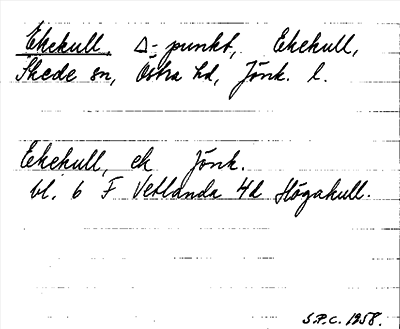 Ekekull. △-punkt, Ekekull,
Skede sn, Östra hd, Jönk. l.
Ekekull, ek Jönk.
bl. 6 F Vetlanda 4d Högakull.
S.P.C. 1958.